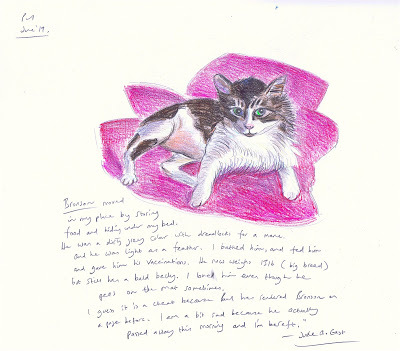 June 19.
Bronson moved
in my place by storing
food and hiding under my bed.
He was a dirty grey color with dreadlocks for a mane
and he was light as a feather. I bathed him, and fed him
and gave him his vaccinations. He now weighs 15 lb (big boned)
but still has a bald belly. I loved him even though he
pees on the mat sometimes.
I guess it is a cheat because Pat has rendered Bronson on
a page before. I am a bit sad because he actually
passed away this morning and I'm bereft."